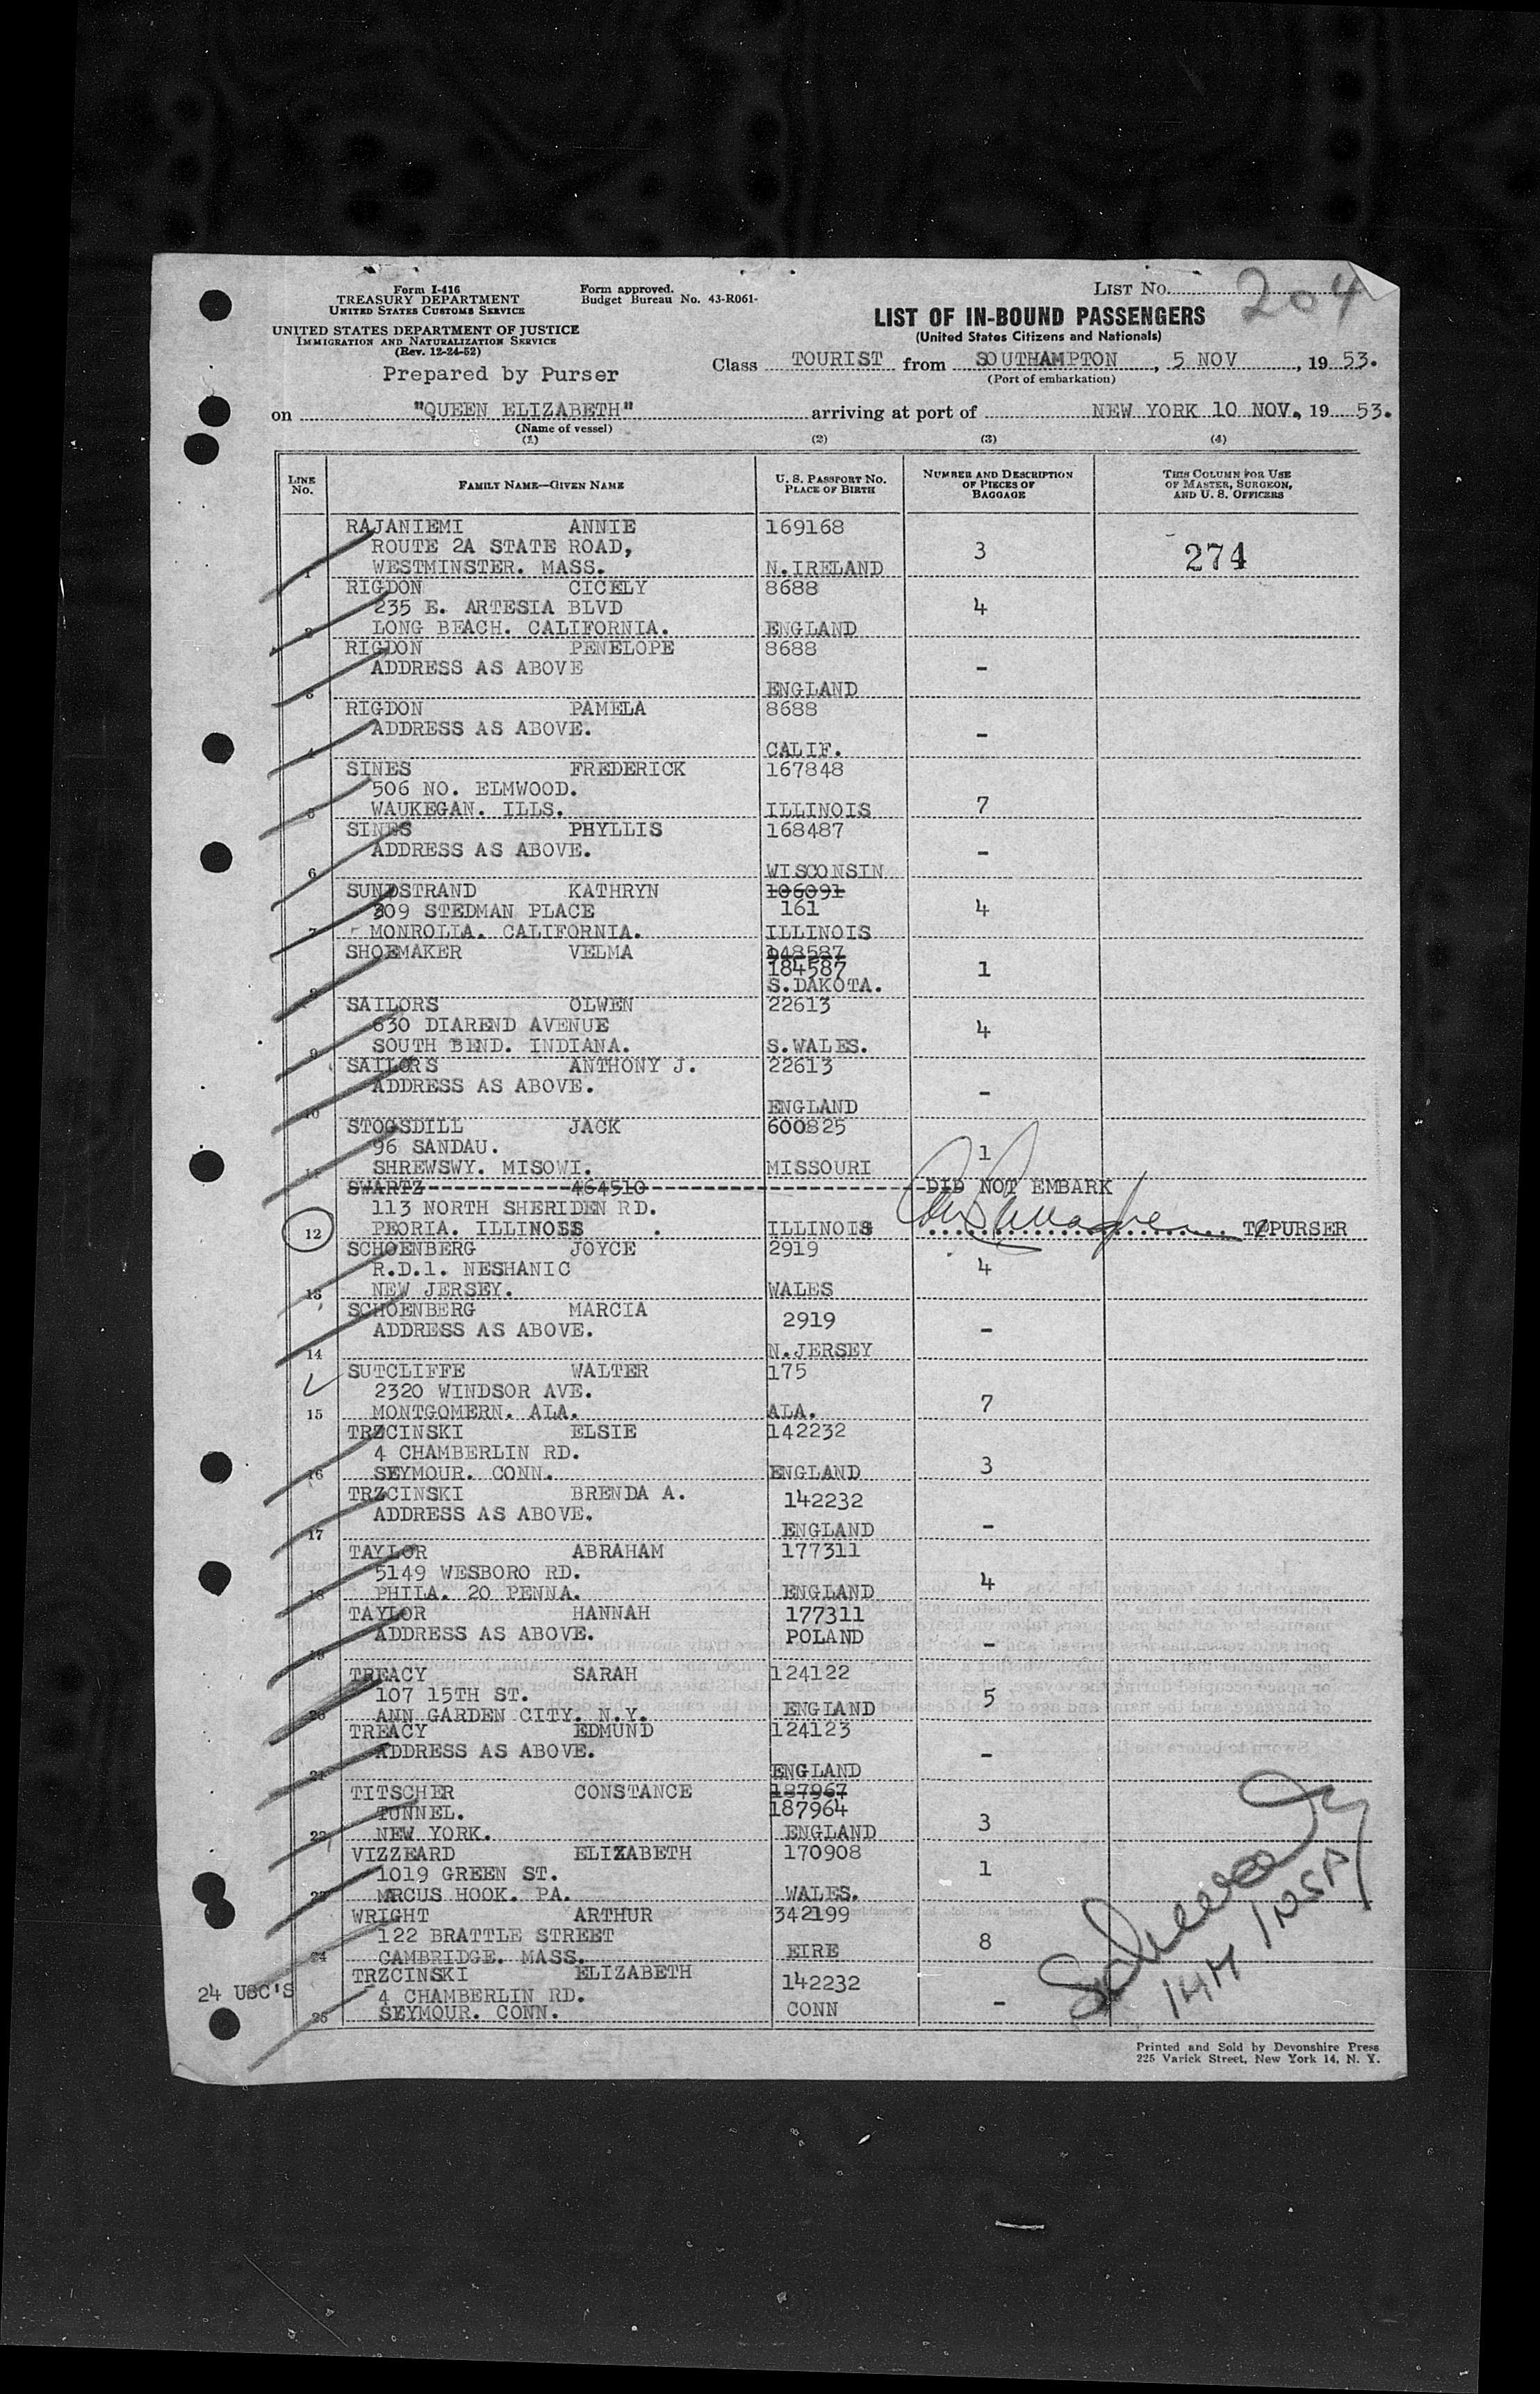 Form I-416
TREASURY DEPARTMENT
UNITED STATES CUSTOMS SERVICE
UNITED STATES DEPARTMENT OF JUSTICE
IMMIGRATION AND NATURALIZATION SERVICE
(Rev. 12-24-52)
Prepared by Purser
Form approved.
Budget Bureau No. 43-R061-
LIST NO. 204
LIST OF IN-BOUND PASSENGERS
(United States Citizens and Nationals)
Class TOURIST from SOUTHAMPTON, 5 NOV, 19 53.
(Port of embarkation)
on "QUEEN ELIZABETH" arriving at port of NEW YORK 10 NOV., 19 53.
(Name of vessel)
(1) (2) (3) (4)
LINE NO. FAMILY NAME—GIVEN NAME U. S. PASSPORT NO. PLACE OF BIRTH NUMBER AND DESCRIPTION OF PIECES OF BAGGAGE THIS COLUMN FOR USE OF MASTER, SURGEON, AND U. S. OFFICERS
RAJANIEMI ANNIE 169168
ROUTE 2A STATE ROAD, 3 274
1 WESTMINSTER. MASS. N.IRELAND
RIGDON CICELY 8688
235 E. ARTESIA BLVD 4
2 LONG BEACH. CALIFORNIA. ENGLAND
RIGDON PENELOPE 8688
ADDRESS AS ABOVE -
3 ENGLAND
RIGDON PAMELA 8688
ADDRESS AS ABOVE. -
4 CALIF.
SINES FREDERICK 167848
506 NO. ELMWOOD.
5 WAUKEGAN. ILLS. ILLINOIS 7
SINES PHYLLIS 168487
ADDRESS AS ABOVE. -
6 WISCONSIN
SUNDSTRAND KATHRYN 106091
309 STEDMAN PLACE 161 4
7 MONROLIA. CALIFORNIA. ILLINOIS
SHOEMAKER VELMA 148587
184587 1
8 S.DAKOTA.
SAILORS OLWEN 22613
630 DIAREND AVENUE 4
9 SOUTH BEND. INDIANA. S.WALES.
SAILORS ANTHONY J. 22613
ADDRESS AS ABOVE. -
10 ENGLAND
STOGSDILL JACK 600825
96 SANDAU. 1
11 SHREWSWY. MISOWI. MISSOURI
SWARTZ 464510 DID NOT EMBARK
113 NORTH SHERIDEN RD.
12 PEORIA. ILLINOIS . ILLINOIS TOPURSER
SCHOENBERG JOYCE 2919
R.D.1. NESHANIC 4
13 NEW JERSEY. WALES
SCHOENBERG MARCIA 2919
ADDRESS AS ABOVE. -
14 N.JERSEY
SUTCLIFFE WALTER 175
2320 WINDSOR AVE. 7
15 MONTGOMERN. ALA. ALA.
TRZCINSKI ELSIE 142232
4 CHAMBERLIN RD. 3
16 SEYMOUR. CONN. ENGLAND
TRZCINSKI BRENDA A. 142232
ADDRESS AS ABOVE. -
17 ENGLAND
TAYLOR ABRAHAM 177311
5149 WESBORO RD. 4
18 PHILA. 20 PENNA. ENGLAND
TAYLOR HANNAH 177311
ADDRESS AS ABOVE. POLAND -
19
TREACY SARAH 124122
107 15TH ST. 5
20 ANN GARDEN CITY. N.Y. ENGLAND
TREACY EDMUND 124123
ADDRESS AS ABOVE. -
21 ENGLAND
TITSCHER CONSTANCE 187967
TUNNEL. 187964 3
22 NEW YORK. ENGLAND
VIZZEARD ELIZABETH 170908
1019 GREEN ST. 1
23 MARCUS HOOK. PA. WALES.
WRIGHT ARTHUR 342199
122 BRATTLE STREET 8
24 CAMBRIDGE. MASS. EIRE
TRZCINSKI ELIZABETH 142232
24 USC'S 4 CHAMBERLIN RD. -
25 SEYMOUR. CONN. CONN
Printed and Sold by Devonshire Press
225 Varick Street, New York 14, N. Y.